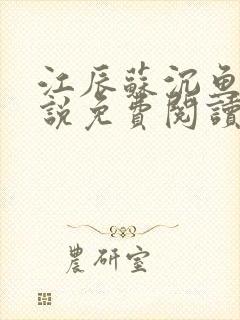 江辰蘇沉魚
說免費閱讀
農研室